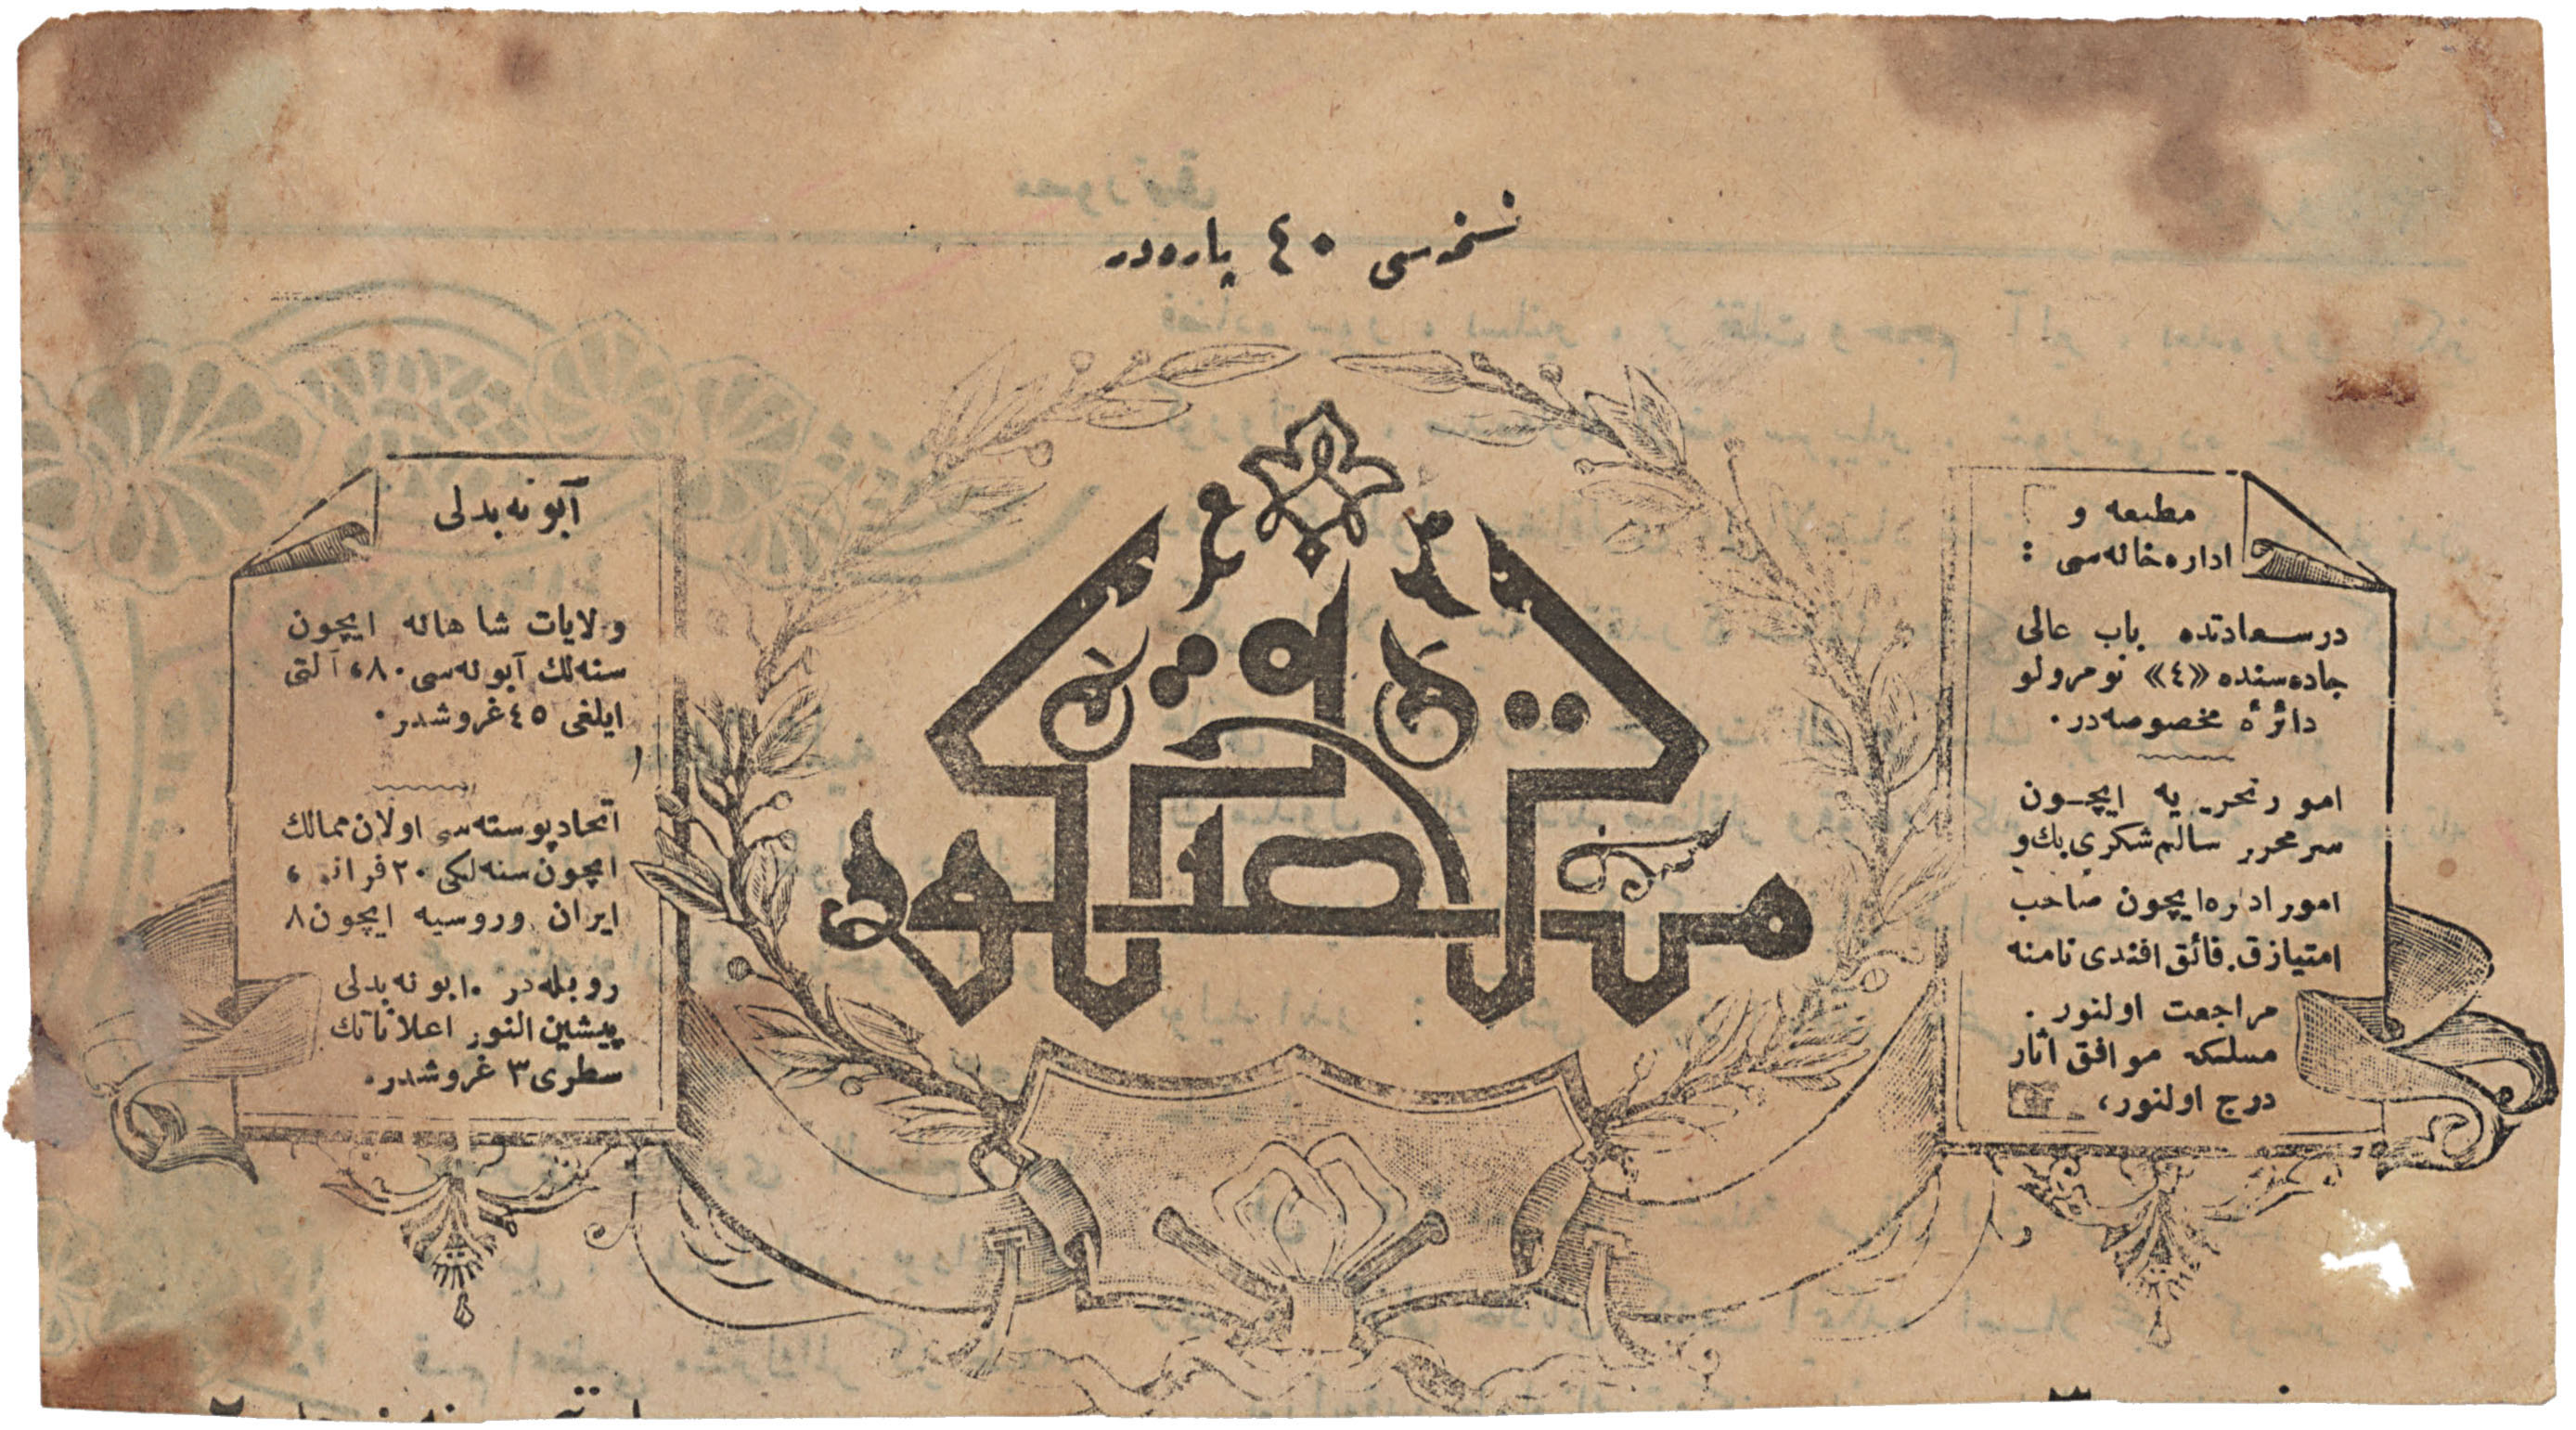 نسخه‌سی ٤٠ پاره‌در
مصور ترقی
مطبعه و
اداره‌خانه‌سی :
درسعادتده باب عالی
جاده‌سنده «٤» نومرولو
دائرهٔ مخصوصه‌در.
امور تحریریه ایچون
سرمحرر سالم شکری بك و
امور اداره ایچون صاحب
امتیاز ق. فائق افندی نامنه
مراجعت اولنور.
مسلکه موافق اثار
درج اولنور،
آبونه بدلی
ولایات شاهانه ایچون
سنه‌لك آبونه‌سی ٨٠، آلتی
ایلغی ٤٥ غروشدر.
اتحاد پوسته‌سی اولان ممالك
ایچون سنه‌لکی ٢٠ فرانه،
ایران وروسیه ایچون ٨
روبله‌در. ابونه بدلی
پیشین النور اعلاناتك
سطری ٣ غروشدر.